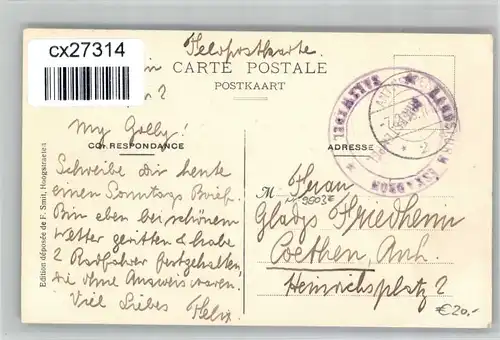 cx27314
Feldpostkarte.
CARTE POSTALE
POSTKAART
My Golly!
CORRESPONDANCE
ADRESSE
Schreibe dir heute
einen Sonntags Brief.
Bin eben bei schönem
Wetter geritten & habe
2 Radfahrer festgehalten,
die ohne Ausweis waren.
Viel Liebes Felix.
M Frau
9503E
Gladys Friedheim
Coethen, Anh.
Heinrichsplatz 2
€20.-
Edition déposée de F. Smit, Hoogstraeten
LANDSTURM ESKADRON